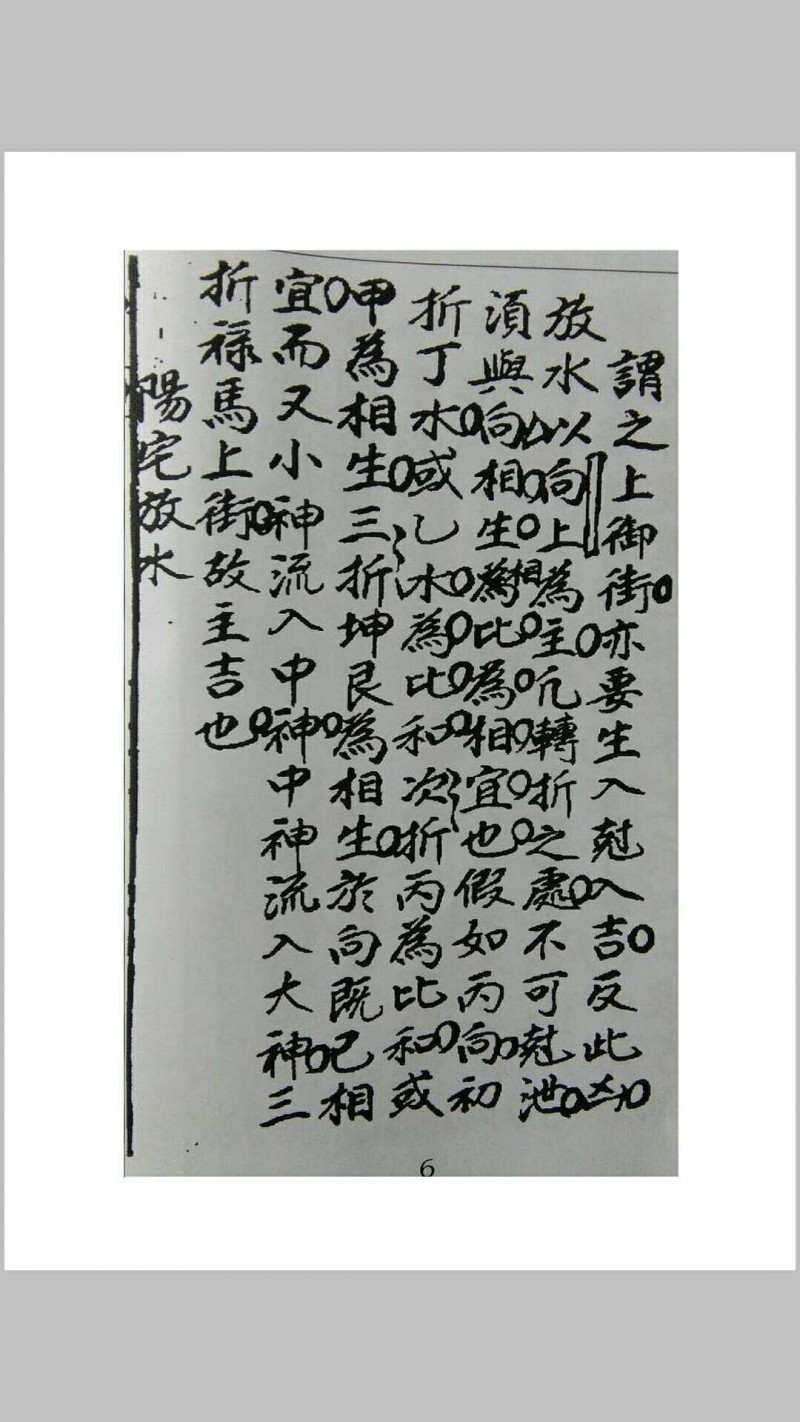 謂之上御街。亦要生入尅入吉。反此凶。
放水以向上為主。凢轉折之處。不可尅泄。
須與向相生為比為相宜也。假如丙向。初
折丁水。或乙水。為比和。次折丙為比和。或
甲為相生。三折坤艮為相生。於向既已相
宜。而又小神流入中神。中神流入大神。三
折祿馬上街。故主吉也。
陽宅放水
6